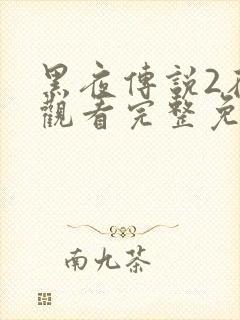 黑夜傳說2
觀看完整免
南九茶